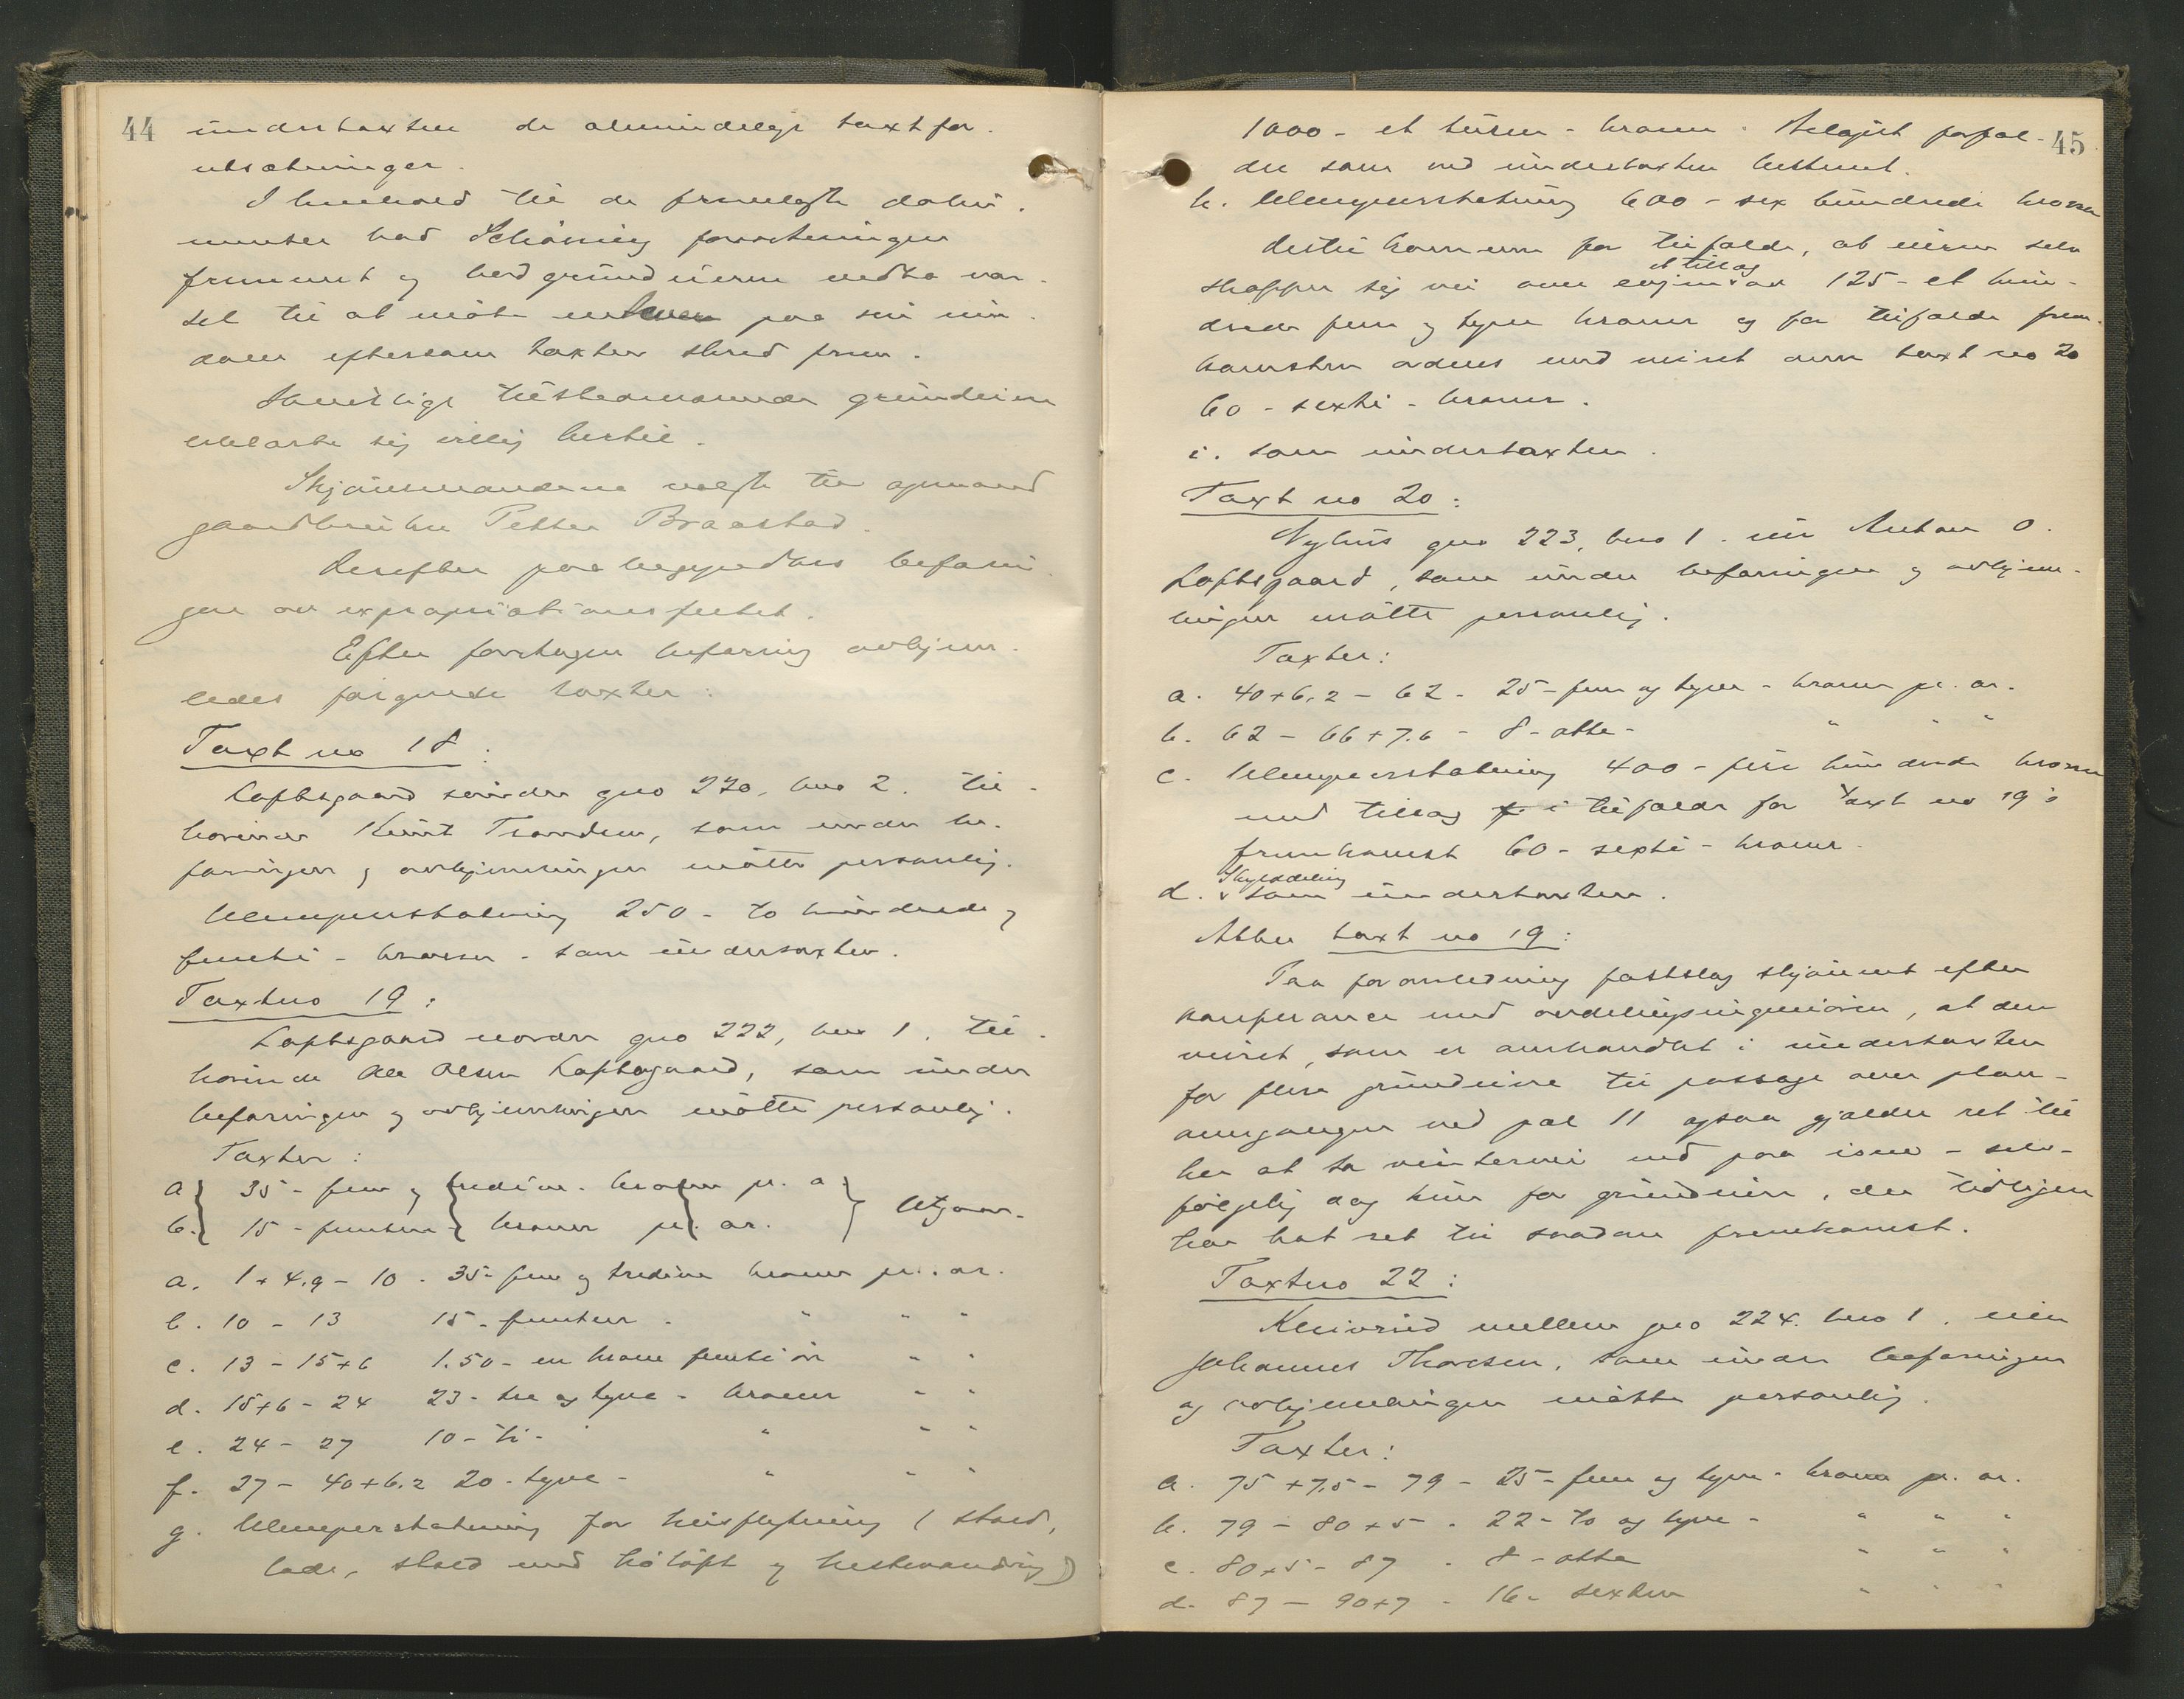 44
undertaxten de almindelige taxtfor-
utsætninger.
I henhold til de fremlagte doku-
menter bad Schiøning forretningen
fremmet og bad grundeierne vedta var-
sel til at møte enhver paa sin eien-
dom eftersom taxten skred frem.
Samtlige tilstedeværende grundeiere
erklærte sig villig hertil.
Skjønsmændene valgte til opmand
gaardbruker Petter Braastad.
Derefter paabegyndtes befarin-
gen av expropriationsfeltet.
Efter foretagen befaring avhjem-
ledes følgende taxter:
Taxt no 18:
Loftsgaard søndre gno 220, bno 2. til-
hørende Knut Trondsen, som under be-
faringen og avhjemlingen møtte personlig.
Ulempeerstatning 250 - to hundrede og
femti - kroner - som undertaxten.
Taxt no 19:
Loftsgaard nordre gno 222, bno 1. til-
hørende Ole Olsen Loftsgaard, som under
befaringen og avhjemlingen møtte personlig.
Taxter:
a} 35 - fem og tredive - kroner pr. a
b.} 15 - femten - kroner pr. ar. } Utgaar.
a. 1+4.9 - 10 - 35 - fem og tredive kroner pr. ar.
b. 10 - 13 15 - femten - " " "
c. 13 - 15+6 1.50 - en krone femti øre " "
d. 15+6 - 24 23 - tre og tyve - kroner " "
e. 24 - 27 10 - ti - " " "
f. 27 - 40+6.2 20 - tyve - " " "
g. Ulempeerstatning for husflytning (stald,
lade, stald med høløft og hestevandring)
45
1000 - et tusen - kroner. Beløpet forfal-
der som ved undertaxten bestemt.
h. Ulempeerstatning 600 - sex hundrede kroner
Hertil kommer for tilfælde, at eieren selv
et tillæg
skaffer sig vei over av 125 - et hun-
drede fem og tyve kroner og for tilfælde frem-
komsten ordnes med veiret over taxt no 20
60 - sexti - kroner.
i. som undertaxten.
Taxt no 20:
Nyhus gno 223, bno 1. eier Anton O.
Loftsgaard, som under befaringen og avhjem-
lingen møtte personlig.
Taxter:
a. 40+6.2 - 62 - 25 - fem og tyve - kroner pr. ar.
b. 62 - 66+7.6 - 8 - otte - " " "
c. Ulempeerstatning 400 - fire hundrede kroner
med tillæg i tilfælde for taxt no 19's
fremkomst 60 - sexti - kroner.
Skylddeling
d. som undertaxten.
Atter taxt no 19:
Paa foranledning fastslog skjønnet efter
konferance med avdelingsingeniøren, at den
veiret, som er omhandlet i undertaxten
for flere grundeiere til passage over plan-
overgangen ved pæl 11 ogsaa gjælder ret til
her at ta vintervei ned paa isen - selv-
følgelig dog kun for grundeiere, der tidligere
har hat ret til saadan fremkomst.
Taxt no 22:
Kleivrud mellem gno 224. bno 1. eier
Johannes Thoresen, som under befaringen
og avhjemlingen møtte personlig.
Taxter:
a. 75+7.5 - 79 - 25 - fem og tyve - kroner pr. ar.
b. 79 - 80+5 - 22 - to og tyve - " " "
c. 80+5 - 87 - 8 - otte " " "
d. 87 - 90+7 - 16 - sexten " " "